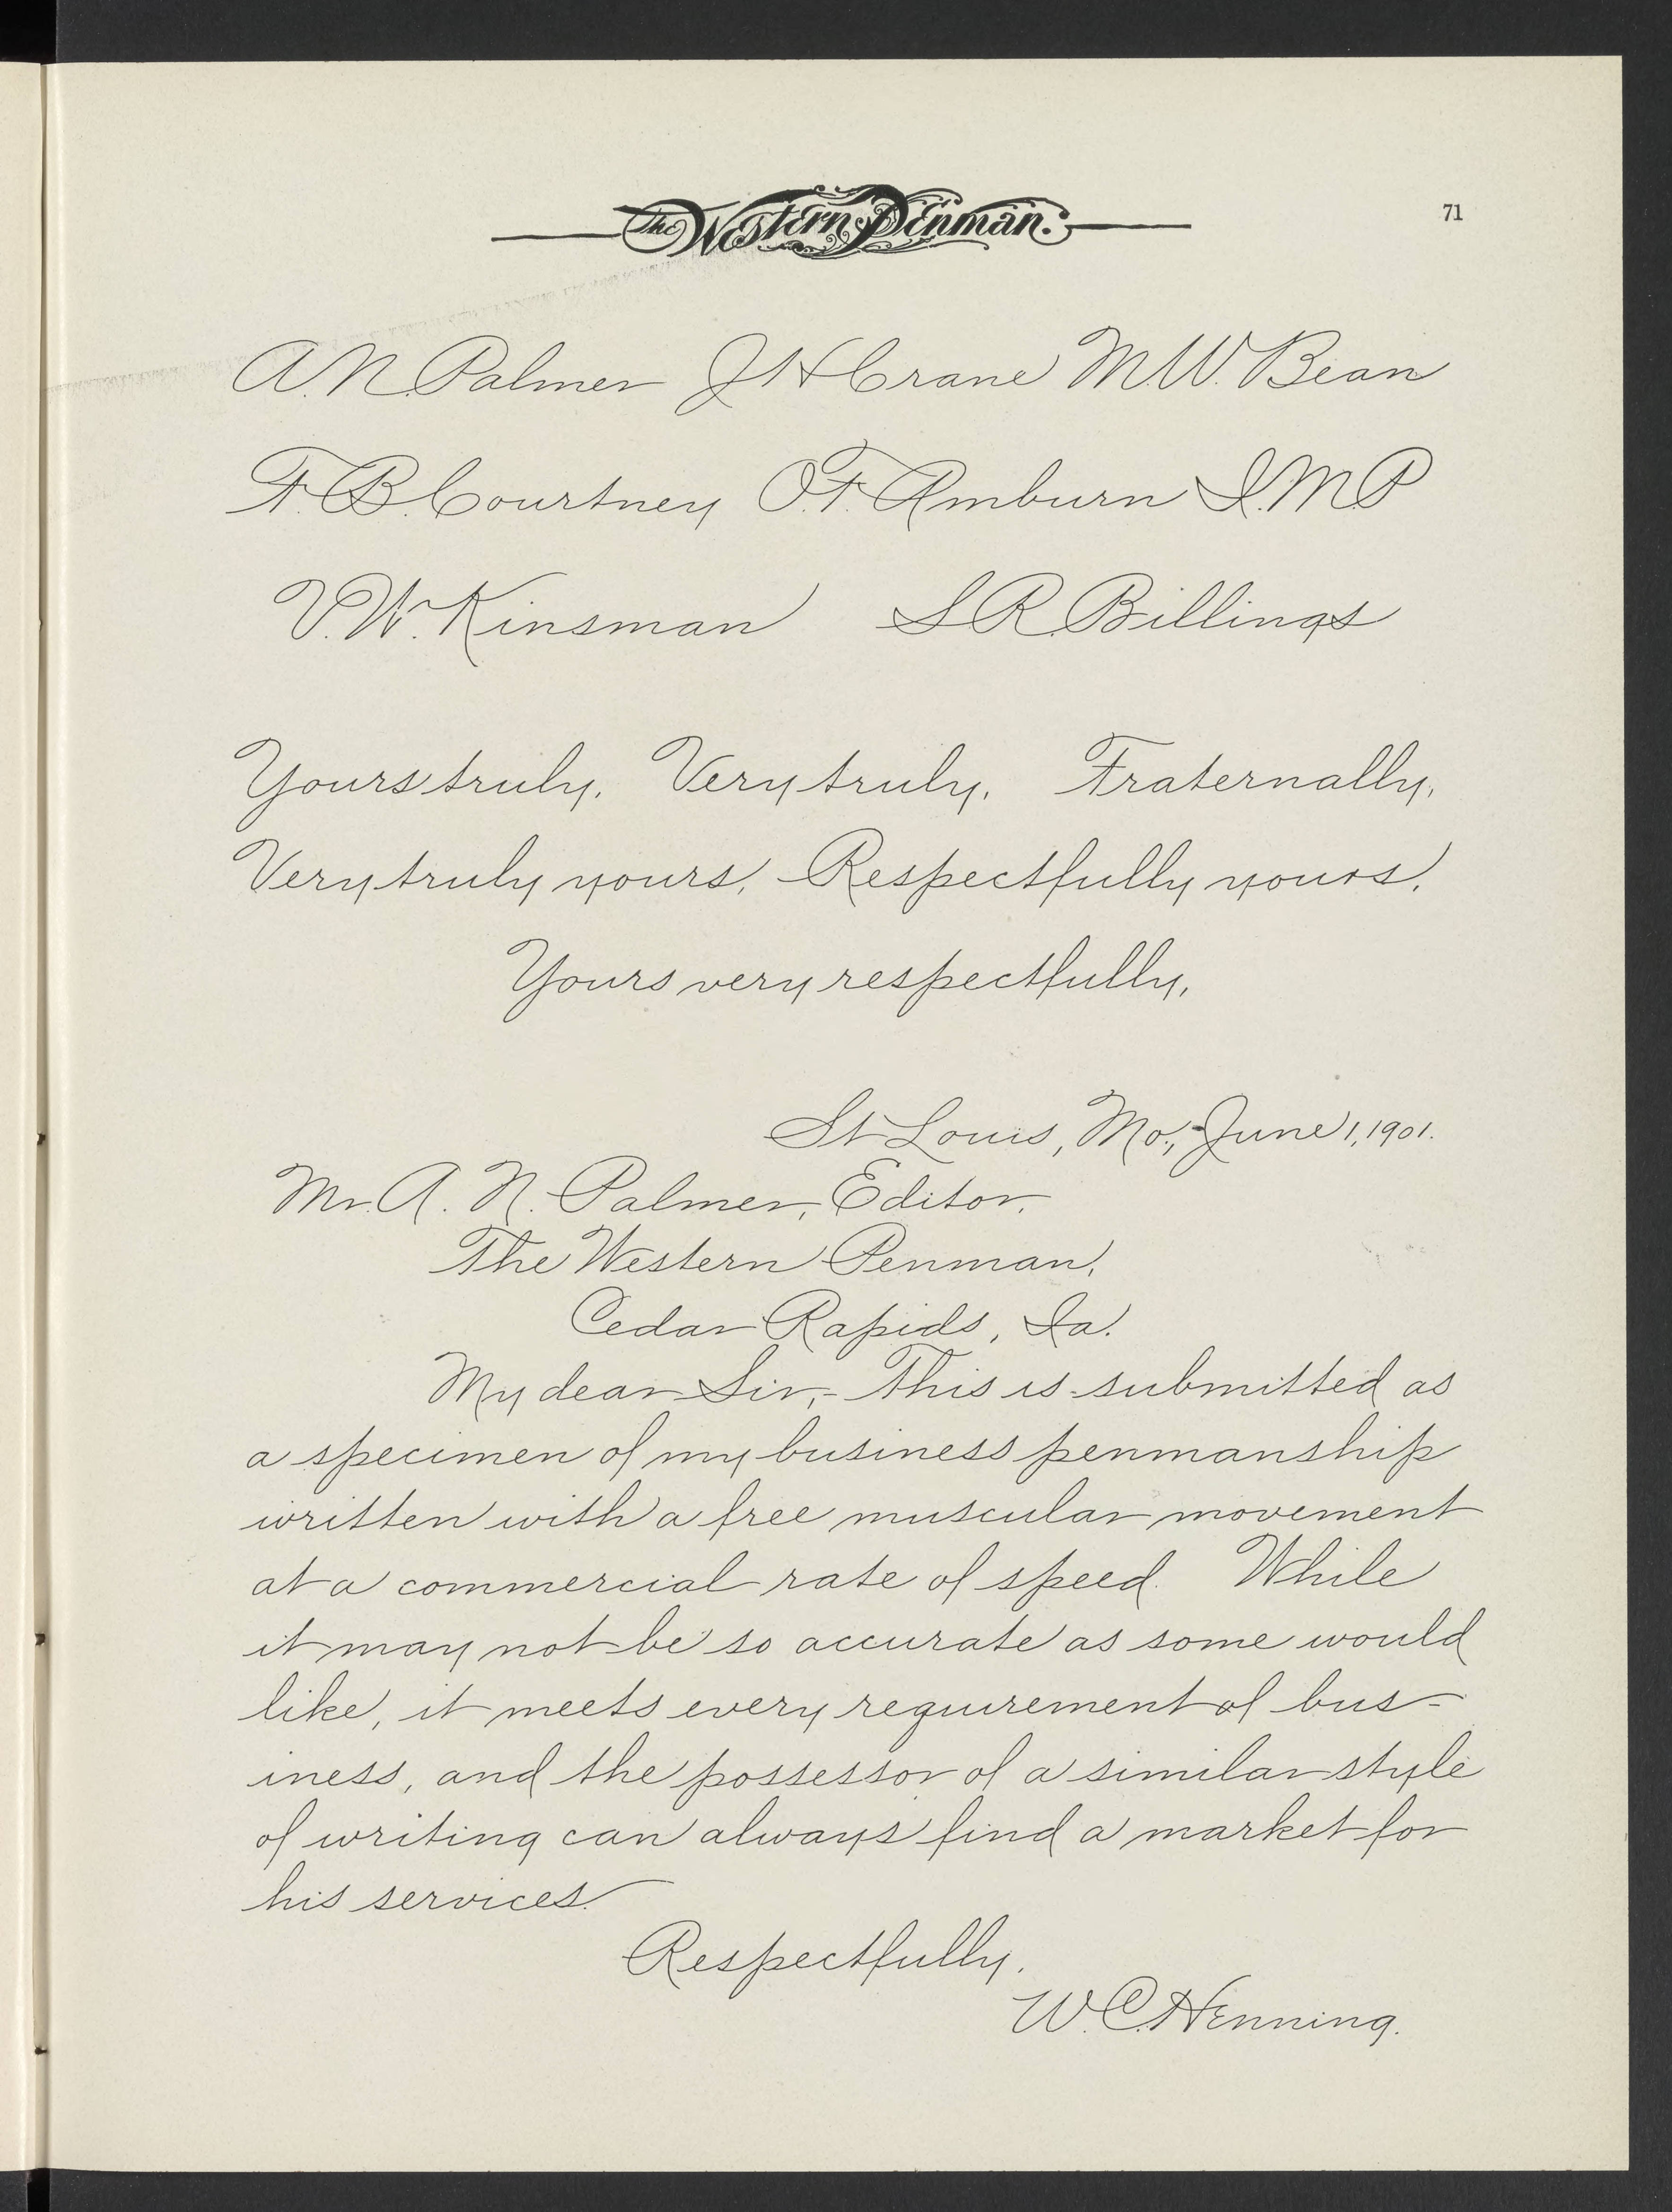 The Western Penman.
71
A. N. Palmer J H Crane M. W. Bean
F. B. Courtney O. F. Amburn I. M. P
V. W. Kinsman S R. Billings
Yours truly, Very truly, Fraternally,
Very truly yours, Respectfully yours,
Yours very respectfully,
St Louis, Mo., June 1, 1901.
Mr. A. N. Palmer, Editor,
The Western Penman,
Cedar Rapids, Ia.
My dear Sir,- This is submitted as
a specimen of my business penmanship
written with a free muscular movement
at a commercial rate of speed. While
it may not be so accurate as some would
like, it meets every requirement of bus-
iness, and the possessor of a similar style
of writing can always find a market for
his services.
Respectfully,
W. C. Henning.